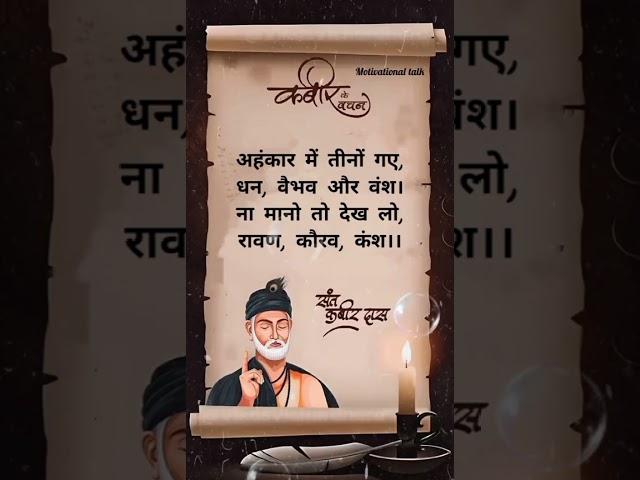 Motivational talk
कबीर के वचन
अहंकार में तीनों गए,
धन, वैभव और वंश।
ना मानो तो देख लो,
रावण, कौरव, कंश।।
संत
कबीर दास